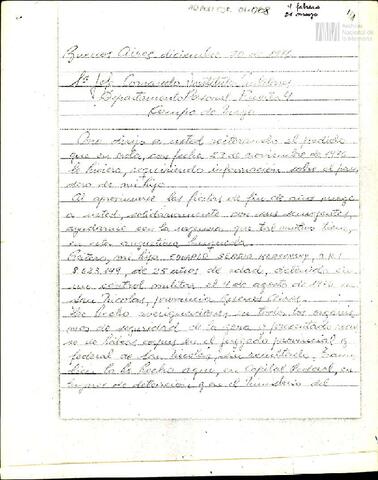 4 febrero
21 mayo
Archivo
Nacional de
la Memoria
Buenos Aires, diciembre 10 de 1976
Sr. Jefe Comando Institutos Militares
Departamento Personal
Campo de Mayo
Me dirijo a usted reiterando el pedido
que en esta, con fecha 23 de noviembre de 1976
le hiciera, requiriendo información sobre el para
dero de mi hijo.
Al aproximarse las fiestas de fin de año ruego
a usted,
ayudarme con la
en esta angustiosa búsqueda.
Reitero, mi hijo,
8.623.849, de 25 años de edad, detenido en
un control militar el 4 de agosto de 1976 en
San Nicolás, provincia Buenos Aires.
He hecho averiguaciones en todos los organis
mos de seguridad de la zona y presentado recur
so de habeas corpus en el juzgado provincial y
federal de San Nicolás, sin resultado. Tam
bién lo he hecho aquí, en Capital Federal, en
lugares de detención y en el Ministerio del